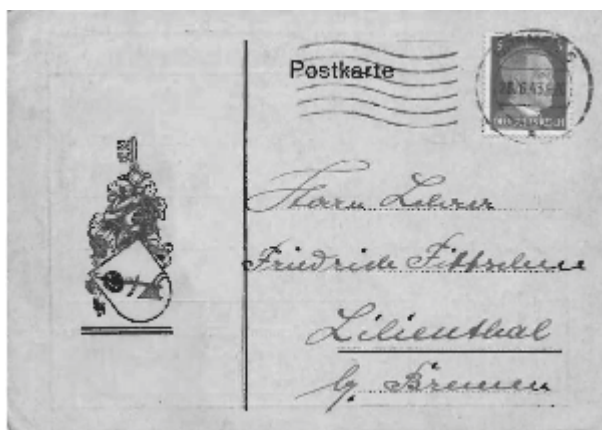 Postkarte
Herrn Lehrer
Friedrich
Lilienthal
bz. Bremen